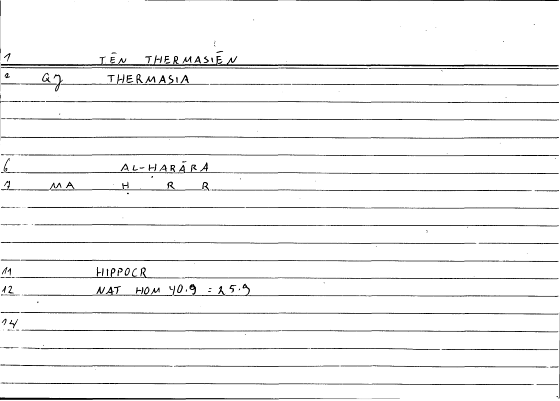 1 TĒN THERMASIĒN
2 QJ THERMASIA
6 AL-ḤARĀRA
7 MA Ḥ R R
11 HIPPOCR
12 NAT HOM 40.9 = 25.9
14